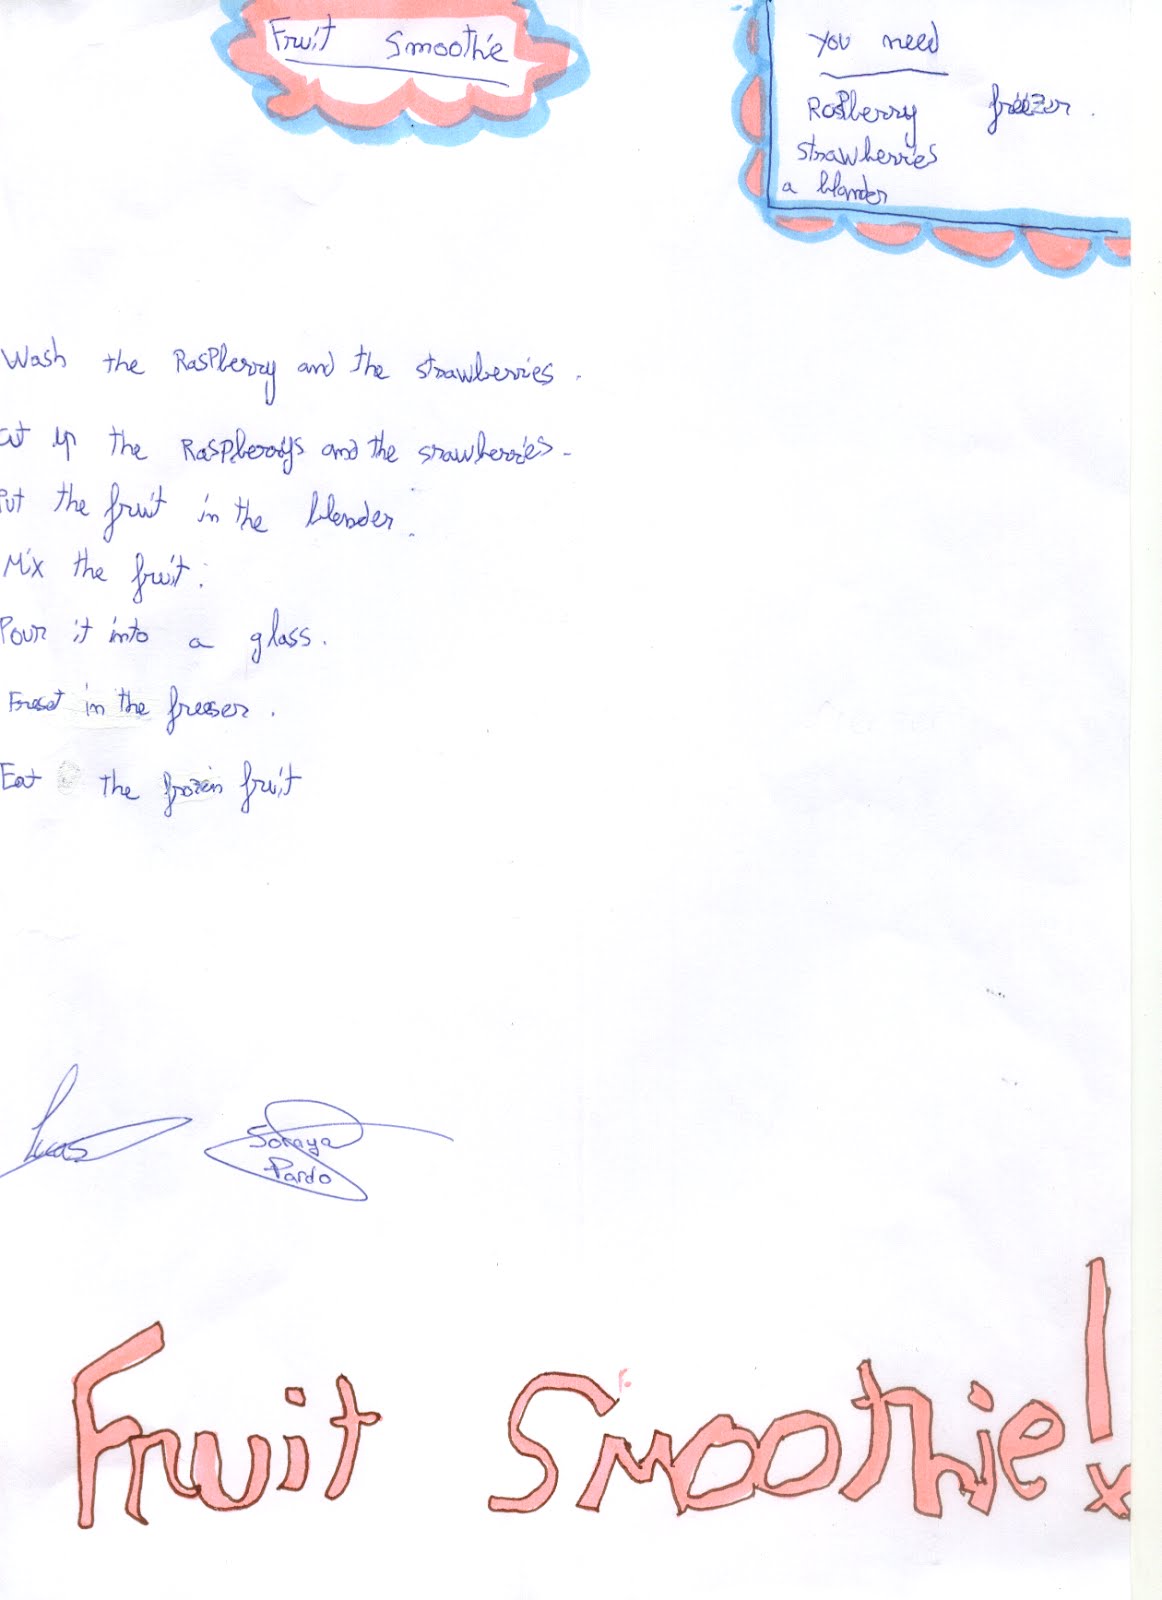 Fruit Smoothie
you need
Raspberry freezer.
strawberries
a blander
Wash the Raspberry and the strawberries.
cut up the Raspberrys and the srawberries.
Put the fruit in the blender.
Mix the fruit.
Pour it into a glass.
in the freeser.
Eat the frozen fruit
Lucas
Soraya
Pardo
Fruit Smoothie!